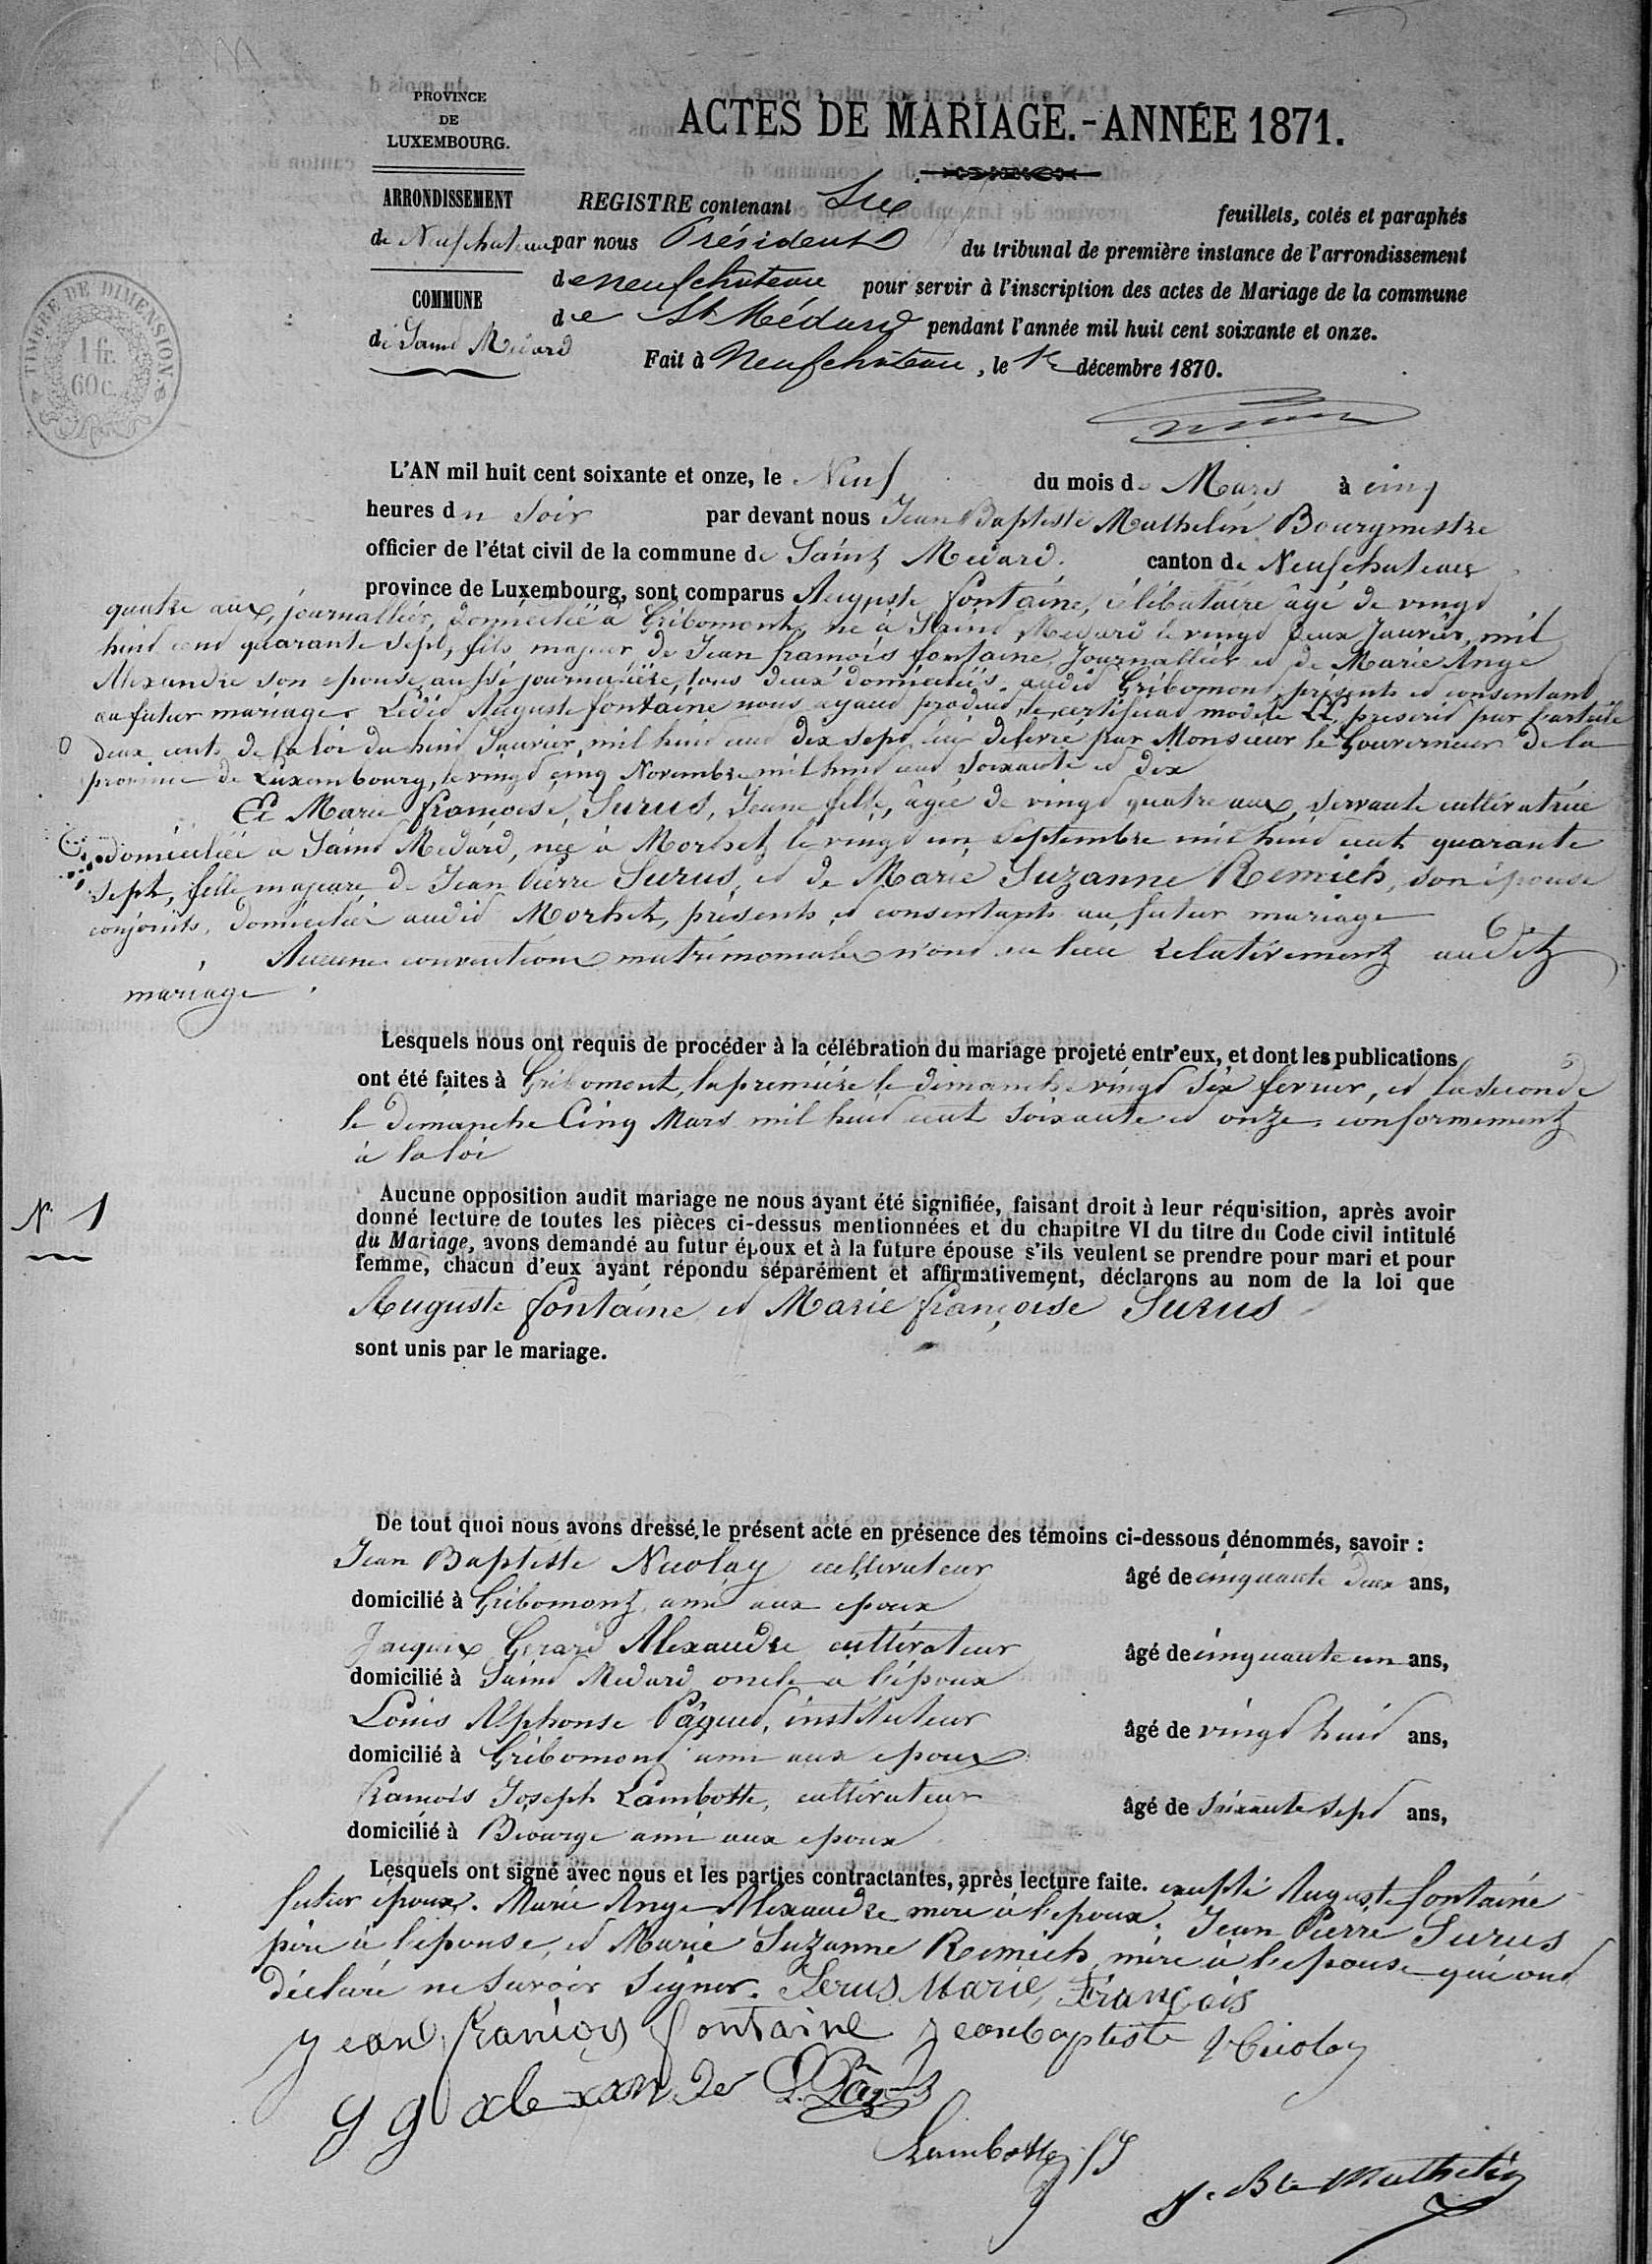 PROVINCE
DE
LUXEMBOURG.
ARRONDISSEMENT
de Neufchateau
COMMUNE
de Saint Médard
TIMBRE DE DIMENSION
1 fr.
60 c.
ACTES DE MARIAGE.-ANNÉE 1871.
REGISTRE contenant Six feuillets, cotés et paraphés
par nous Président du tribunal de première instance de l'arrondissement
de neufchateau pour servir à l'inscription des actes de Mariage de la commune
de St Médard pendant l'année mil huit cent soixante et onze.
Fait à Neufchateau, le 1er décembre 1870.
L'AN mil huit cent soixante et onze, le Neuf du mois de Mars à cinq
heures du Soir par devant nous Jean Baptiste Mathelin Bourgmestre
officier de l'état civil de la commune de Saint Medard. canton de Neufchateau
province de Luxembourg, sont comparus Auguste fontaine, célibataire âgé de vingt
quatre ans, journallier, domiciliée à Gribomont, né à Saint Medard le vingt deux Janvier, mil
huit cent quarante sept, fils majeur de Jean françois fontaine, Journallier et de Marie Ange
Alexandre son epouse aussi journalière, tous deux domiciliés audit Gribomont, présents et consentant
au futur mariage. Ledit Auguste fontaine nous ayant produit le certificat modèle LL, prescrit par l'article
deux cents de la loi du huit Janvier, mil huit cent dix sept lui délivré par Monsieur le Gouverneur de la
province de Luxembourg, le vingt cinq Novembre mil huit cent soixante et dix
Et Marie françoise, Surus, Jeune fille, âgée de vingt quatre ans, servante cultivatrice
domiciliée à Saint Medard, née à Morhet le vingt un Septembre mil huit cent quarante
sept, fille majeure de Jean Pierre Surus, et de Marie Suzanne Remich, son épouse
conjoints, domiciliés audit Morhet, présents et consentants au futur mariage
Aucune conventions matrimoniales n'ont eu lieu relativement audit
mariage.
Lesquels nous ont requis de procéder à la célébration du mariage projeté entr'eux, et dont les publications
ont été faites à Gribomont, la première le dimanche vingt six fevrier, et la seconde
le dimanche Cinq Mars mil huit cent soixante et onze, conformement
à la loi
N° 1
Aucune opposition audit mariage ne nous ayant été signifiée, faisant droit à leur réquisition, après avoir
donné lecture de toutes les pièces ci-dessus mentionnées et du chapitre VI du titre du Code civil intitulé
du Mariage, avons demandé au futur époux et à la future épouse s'ils veulent se prendre pour mari et pour
femme, chacun d'eux ayant répondu séparément et affirmativement, déclarons au nom de la loi que
Auguste fontaine et Marie françoise Surus
sont unis par le mariage.
De tout quoi nous avons dressé le présent acte en présence des témoins ci-dessous dénommés, savoir :
Jean Baptiste Nicolay cultivateur âgé de cinquante deux ans,
domicilié à Gribomont, ami aux epoux
Jacques Gerard Alexandre cultivateur âgé de cinquante un ans,
domicilié à Saint Medard oncle a l'époux
Louis Alphonse Pâquet, instituteur âgé de vingt huit ans,
domicilié à Gribomont ami aux epoux
françois Joseph Lambotte, cultivateur âgé de Soixante sept ans,
domicilié à Biourge ami aux epoux
Lesquels ont signé avec nous et les parties contractantes, après lecture faite. excepté Auguste fontaine
futur époux. Marie Ange Alexandre mère à l'epoux. Jean Pierre Surus
père à l'epouse, et Marie Suzanne Remich mère à l'epouse qui ont
déclaré ne savoir signer. Serus Marie, François
jean francois fontaine jean baptiste Nicolay
J g alexander
Lambotte fJ
J. Bte Mathelin